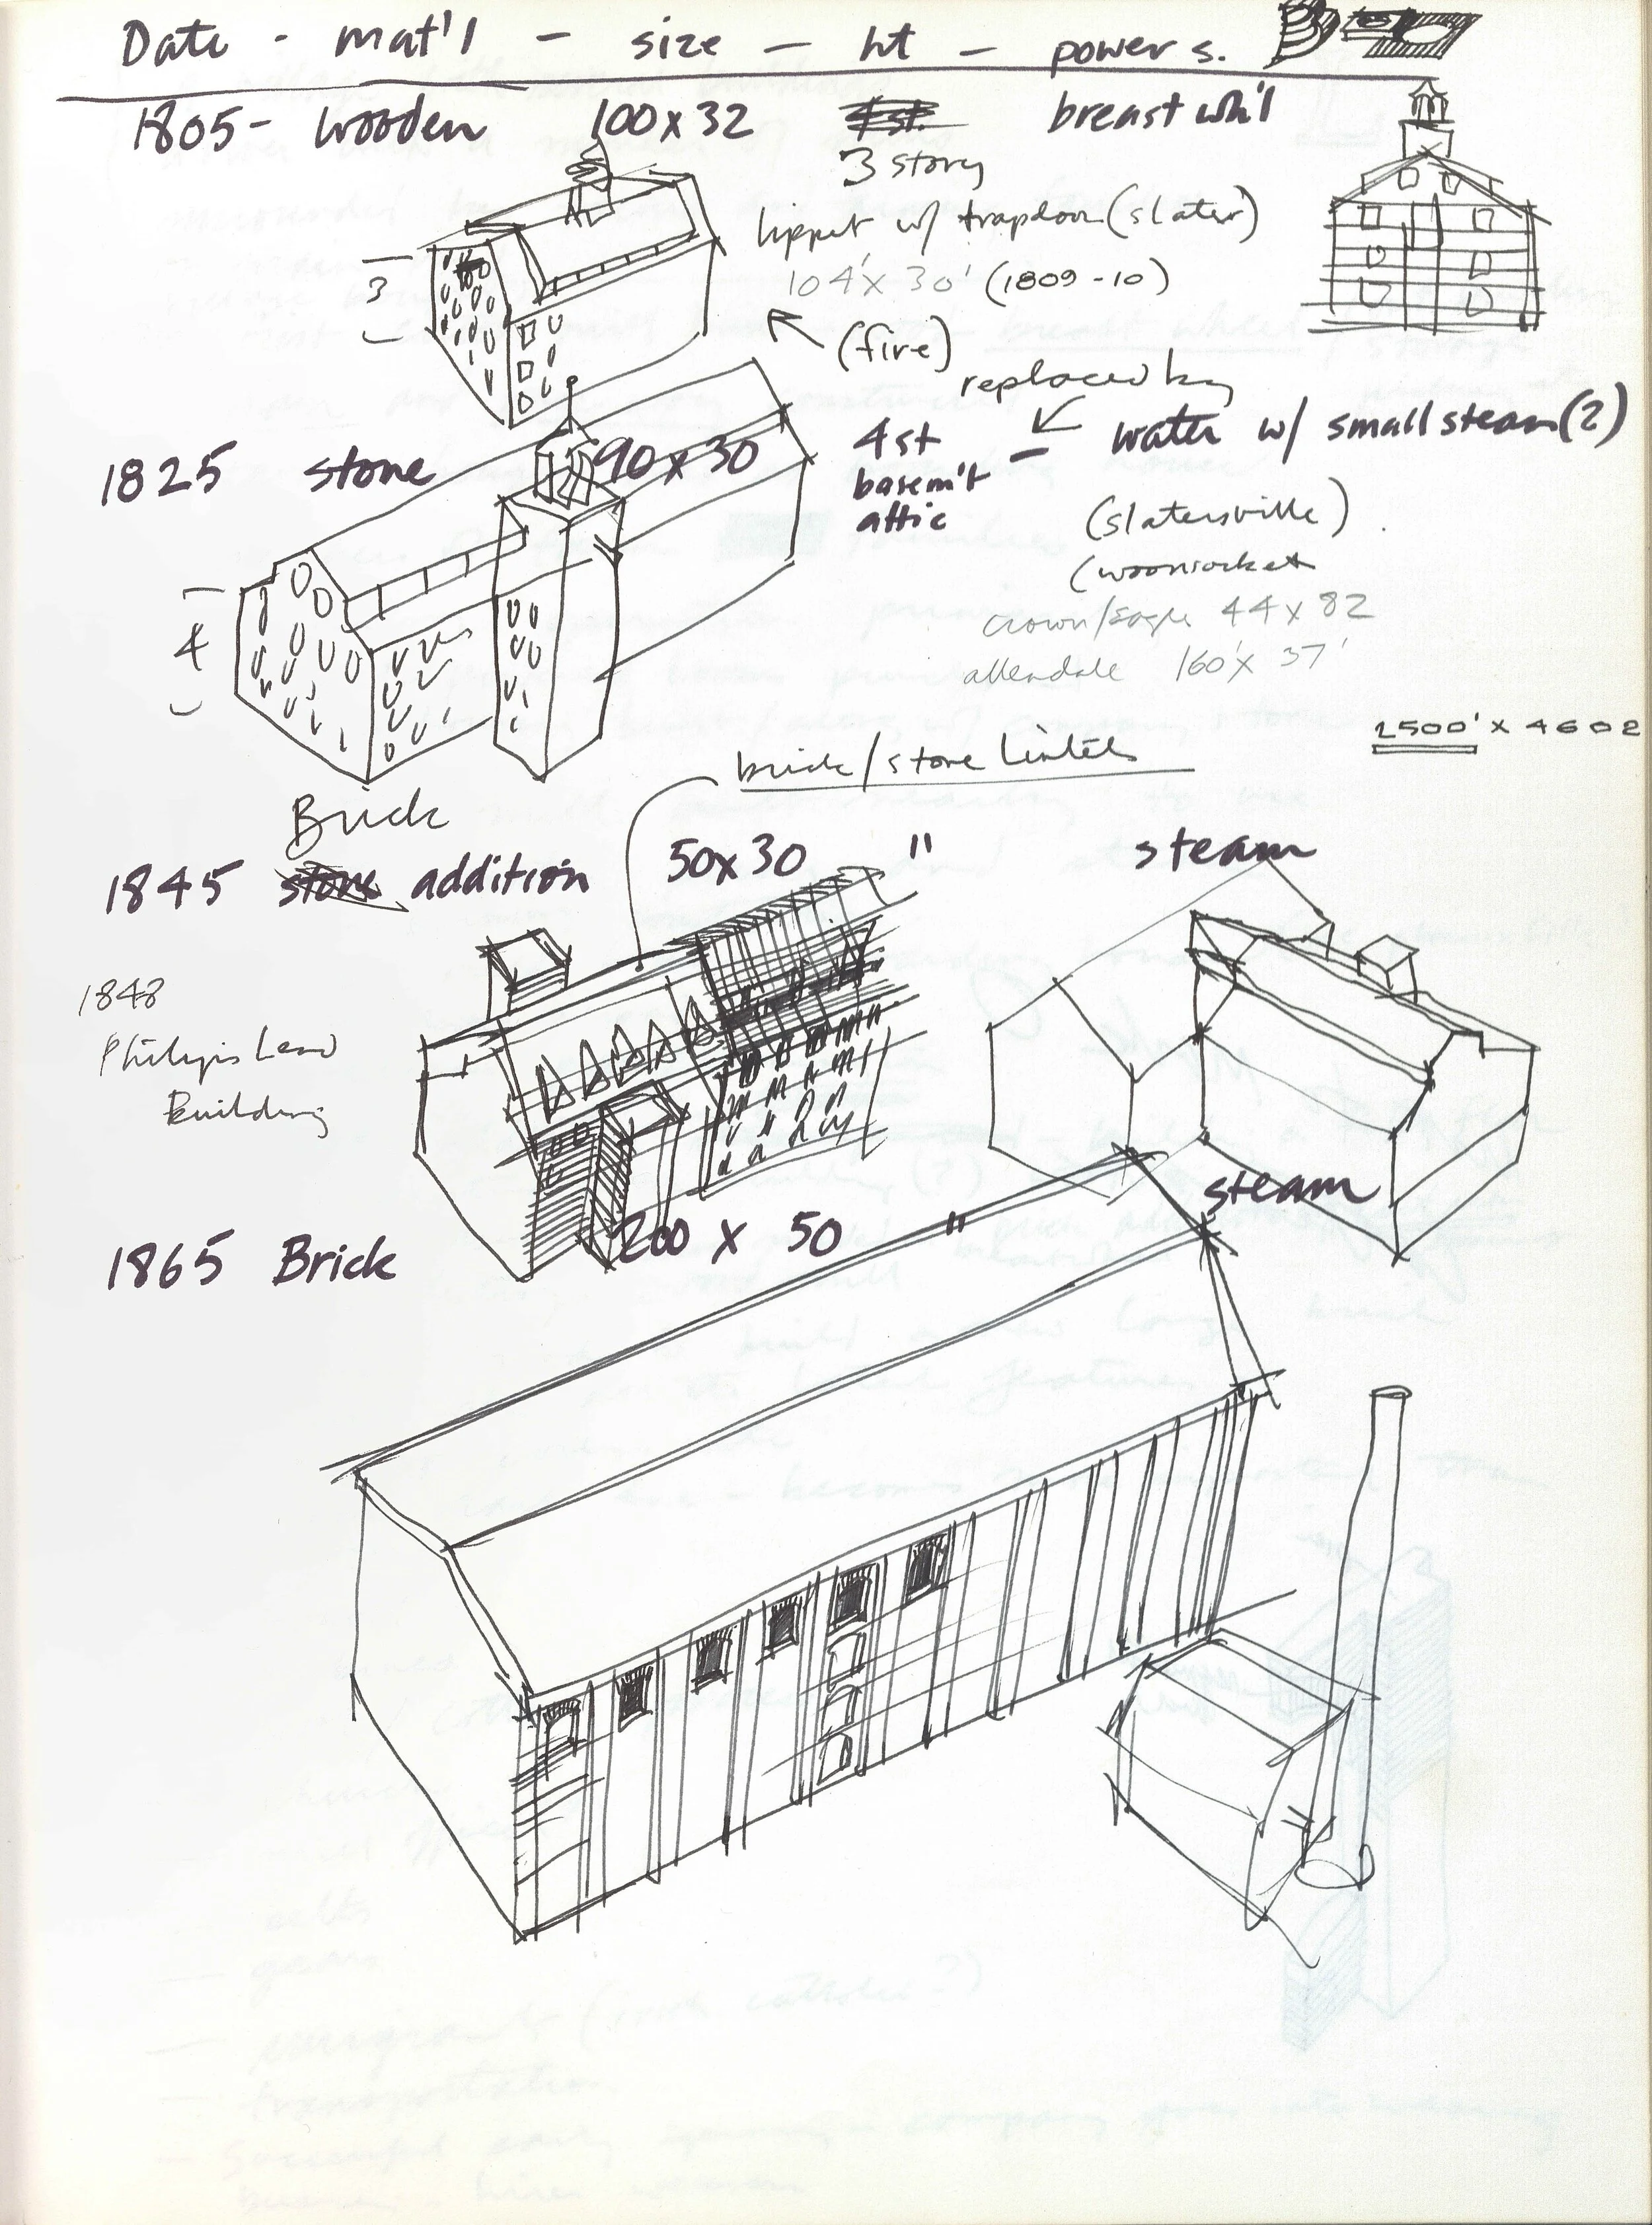 Date - mat'l - size - ht - power s.
1805 - wooden 100 x 32 4st. breast wh'l
3 story
lippit w/ trapdoor (slater)
104' x 30' (1809-10)
3
(fire)
replaced by
1825 stone 90 x 30 4st - water w/ small steam (?)
basem't
attic
(slatersville)
(woonsocket
crown/eagle 44 x 82
allendale 160' x 37'
4
2500' x 4602
brick/stone lintels
Brick
1845 stone addition 50 x 30 " steam
1848
Building
1865 Brick 200 x 50 " steam